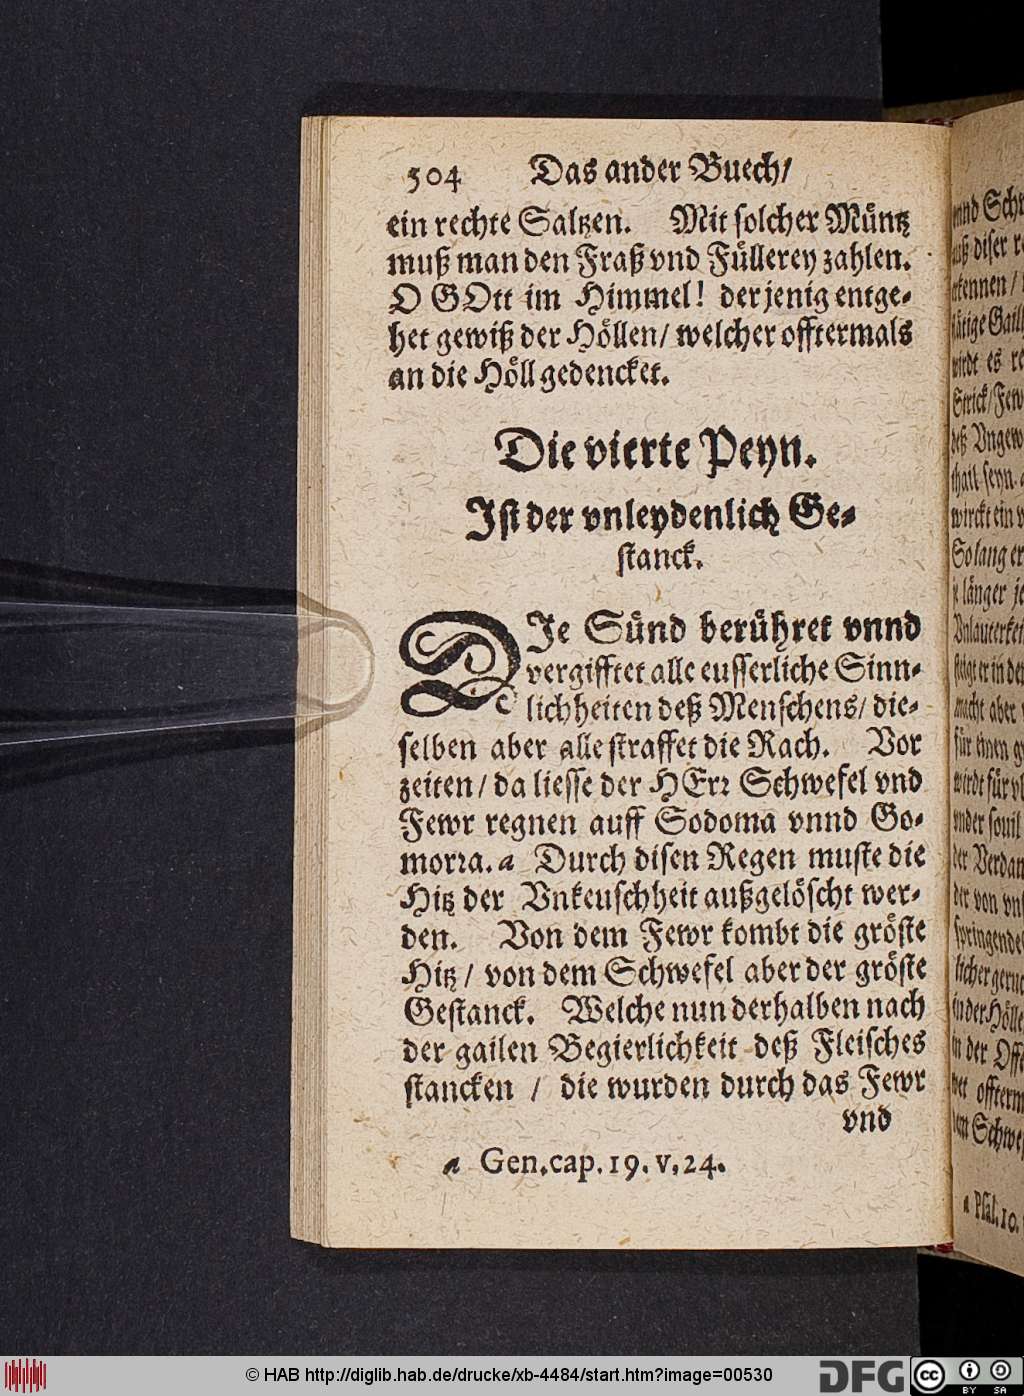 504 Das ander Buech/
ein rechte Saltzen. Mit solcher Müntz
muß man den Fraß vnd Füllerey zahlen.
O GOtt im Himmel! derjenig entge-
het gewiß der Höllen/ welcher offtermals
an die Höll gedencket.
Die vierte Peyn.
Ist der vnleydenlich Ge-
stanck.
DIe Sünd berühret vnnd
vergifftet alle eusserliche Sinn-
lichheiten deß Menschens/ die-
selben aber alle straffet die Rach. Vor
zeiten/ da liesse der HErr Schwefel vnd
Fewr regnen auff Sodoma vnnd Go-
morra. a Durch disen Regen muste die
Hitz der Vnkeuschheit außgelöscht wer-
den. Von dem Fewr kombt die gröste
Hitz/ von dem Schwefel aber der gröste
Gestanck. Welche nun derhalben nach
der gailen Begierlichkeit deß Fleisches
stancken / die wurden durch das Fewr
vnd
a Gen.cap.19.v.24.
diser
kennen/
wirdt es
Strick/
wirckt ein
So lang er
je länger je
macht aber
für einen
wirdt für
vnder souil
der von
in der Höll
in der Offe
offterm
a Psal.10.
© HAB http://diglib.hab.de/drucke/xb-4484/start.htm?image=00530
DFG
cc
BY SA